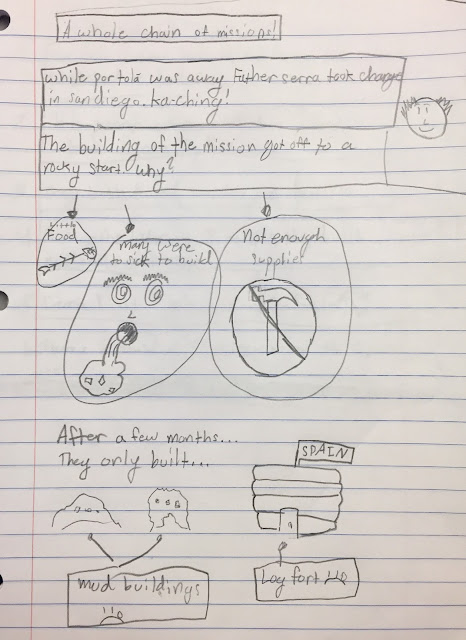 A whole chain of missions!
while portola was away Father serra took charge
in sandiego. ka-ching!
The building of the mission got off to a
rocky start. why?
little
Food
many were
to sick to build
Not enough
supplies
After a few months...
They only built...
SPAIN
mud buildings
Log fort